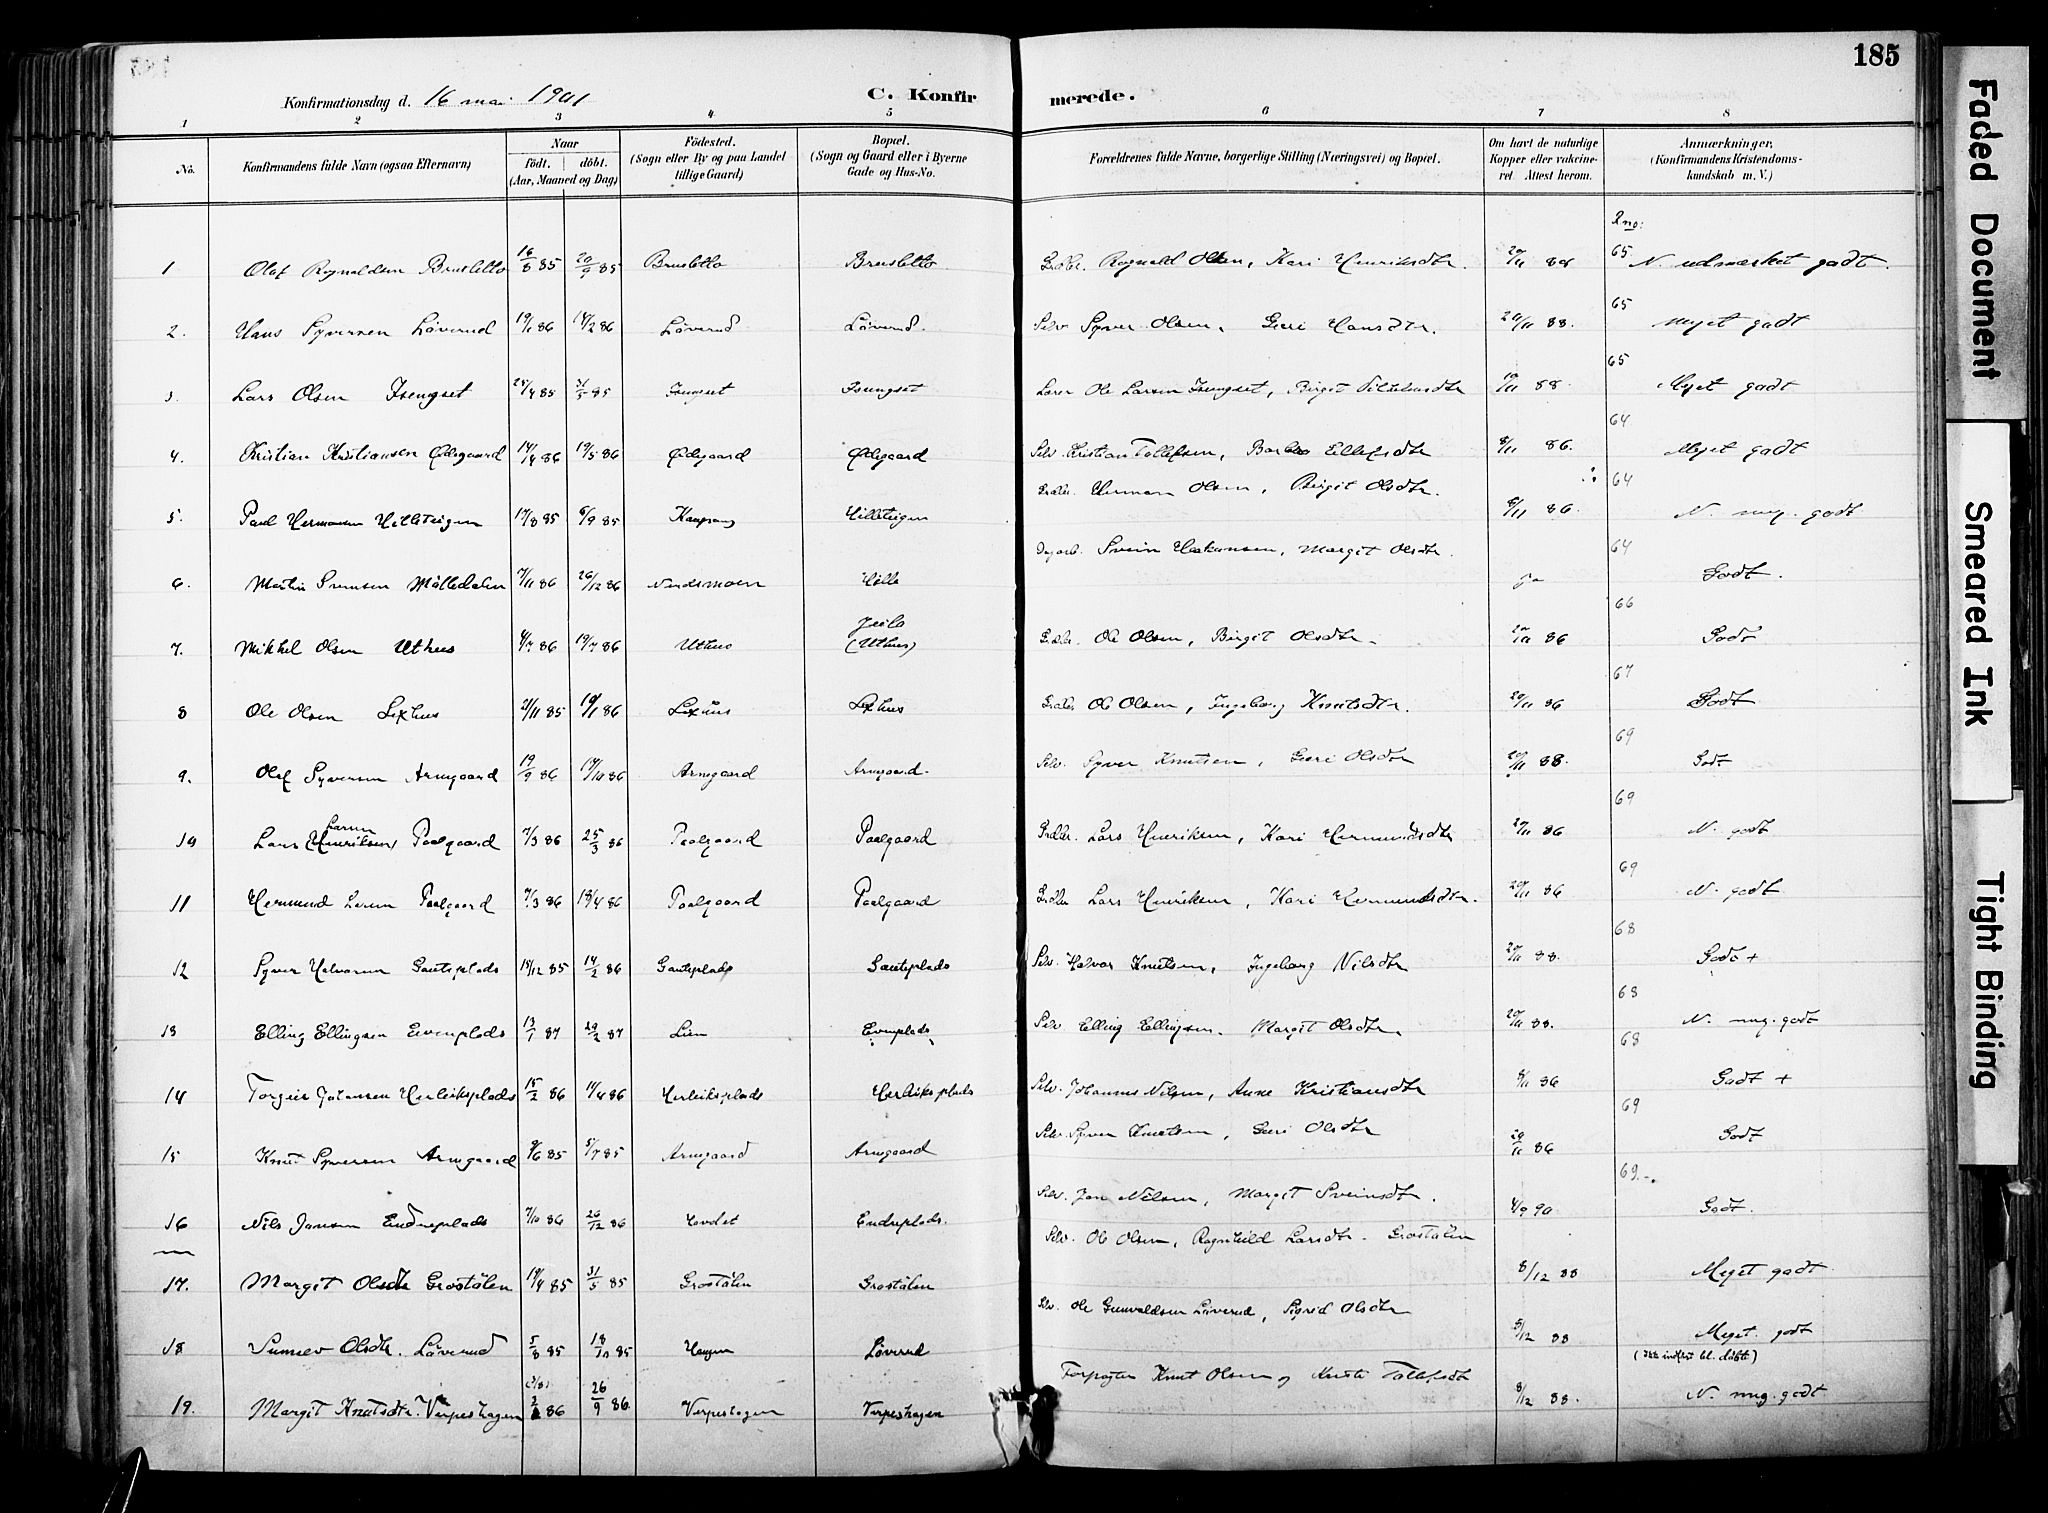 185
Konfirmationsdag d. 16 mai 1901
C. Konfirmerede.
1 2 3 4 5 6 7 8
No. Konfirmandens fulde Navn (ogsaa Efternavn) Naar födt. döbt. (Aar, Maaned og Dag) Födested. (Sogn eller By og paa Landet tillige Gaard) Bopæl. (Sogn og Gaard eller i Byerne Gade og Hus-No. Forældrenes fulde Navne, borgerlige Stilling (Næringsvei) og Bopæl. Om havt de naturlige Kopper eller vakcineret. Attest herom. Anmærkninger, (Konfirmandens Kristendomskundskab m. V.)
1 Olaf Rognaldsen Brusletto 16/8 85 20/9 85 Brusletto Brusletto Grdbr. Rognald Olsen, Kari Henriksdtr. 20/11 88 65 N. udmærket godt.
2. Hans Syversen Löverud 19/1 86 14/2 86 Löverud Löverud. Selv. Syver Olsen, Guri Hansdtr. 20/11 88. 65 Meget godt
3. Lars Olsen 85 31/5 85 Lærer Ole Larsen, Birgit 88. 65 Meget godt
4. Kristian Kristiansen Ödegaard 14/4 86 19/5 86 Ödegaard Ödegaard Selv. Kristian Tollefsen, Barbro Ellefsdtr 8/11 86. 64 Meget godt
5. Paul Hermansen 17/8 85 6/9 85 Grdbr. Herman Olsen, Birgit Olsdtr. 8/11 86. 64 N. mg. godt
6. Martin Sveinsen Mölledalen 7/11 86 26/12 86 Nordsmoen Dagarb. Svein Haakonsen, Margit Olsdtr. ja 64 Godt.
7. Mikkel Olsen Uthus 4/7 86 19/7 86 Uthus Geilo (Uthus) Grdbr. Ole Olsen, Birgit Olsdtr. 20/11 86 66 Godt
8 Ole Olsen 21/11 85 10/1 86 Grdbr Ole Olsen, Ingeborg Knutsdtr. 20/11 86 67 Godt
9. Olaf Syversen Arnegaard 19/9 86 86 Arnegaard Arnegaard. Selv. Syver Knutsen, Guri Olsdtr 20/11 88. 69 Godt
10 Lars Larsen (Henriksen) Paalgaard 7/3 86 25/3 86 Paalgaard Paalgaard Grdbr. Lars Henriksen, Kari Hermundsdtr 20/11 86 69 N. godt
11 Hermund Larsen Paalgaard 7/3 86 18/4 86 Paalgaard Paalgaard Grdbr Lars Henriksen, Kari Hermundsdtr. 20/11 86 69 N. godt
12 Syver Halvorsen Gauteplads 15/12 85 14/2 86 Gauteplads Gauteplads Selv. Halvor Knutsen, Ingeborg Nilsdtr 20/11 88. 68 Godt +
13 Elling Ellingsen Evenplads 13/1 87 20/2 87 Lien Evenplads Selv. Elling Ellingsen. Margit Olsdtr. 20/11 88. 68 N. mg. godt
14 Torgeir Johansen Herleiksplads 15/2 86 11/4 86 Herleiksplads Herleiksplads Selv. Johannes Nilsen, Anne Kristiansdtr 8/11 86 68 Godt +
15 Knut Syversen Arnegaard 9/6 85 5/7 85 Arnegaard Arnegaard Selv. Syver Knutsen, Guri Olsdtr 20/11 86 69 Godt
16 Nils Jansen Endreplads 7/10 86 26/12 86 Hovdet Endreplads. Selv. Jan Nilsen, Margit Sveinsdtr. 4/9 90 69 Godt.
17. Margit Olsdtr Grostölen 19/4 85 31/5 85 Grostölen Grostölen Selv. Ole Olsen, Ragnhild Larsdtr. Grostölen 8/12 88 Meget godt
18 Sunnev Olsdtr. Löverud 5/8 85 18/10 85 Haugen Löverud Selv. Ole Gunvaldsen Löverud, Sigrid Olsdtr 8/12 88 Meget godt (ikke indført bl. døbte)
19. Margit Knutsdtr. Verpeshagen 86 26/9 86 Verpeshagen Verpeshagen Forpagter Knut Olsen og Kristi Tollefsdtr 8/12 88. N. mg. godt
Faded Document
Smeared Ink
Tight Binding